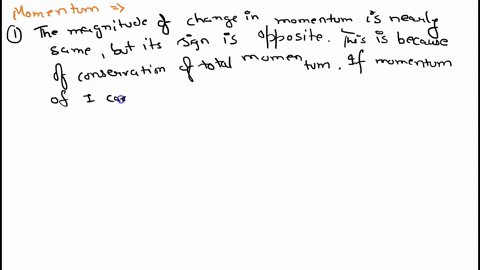 Momentum ⇒
① The magnitude of change in momentum is nearly
same, but its sign is opposite. This is because
of conservation of total momentum. If momentum
of I ca